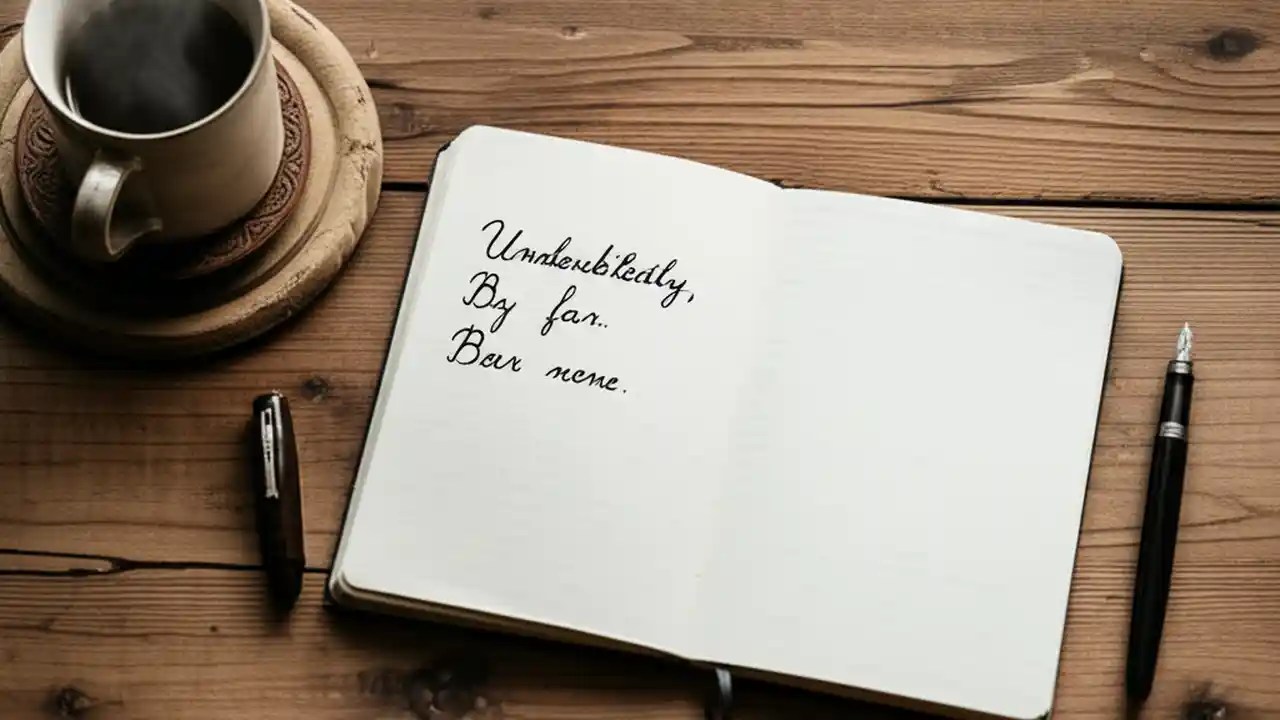 Undenbibedly,
By far.
Bar none.